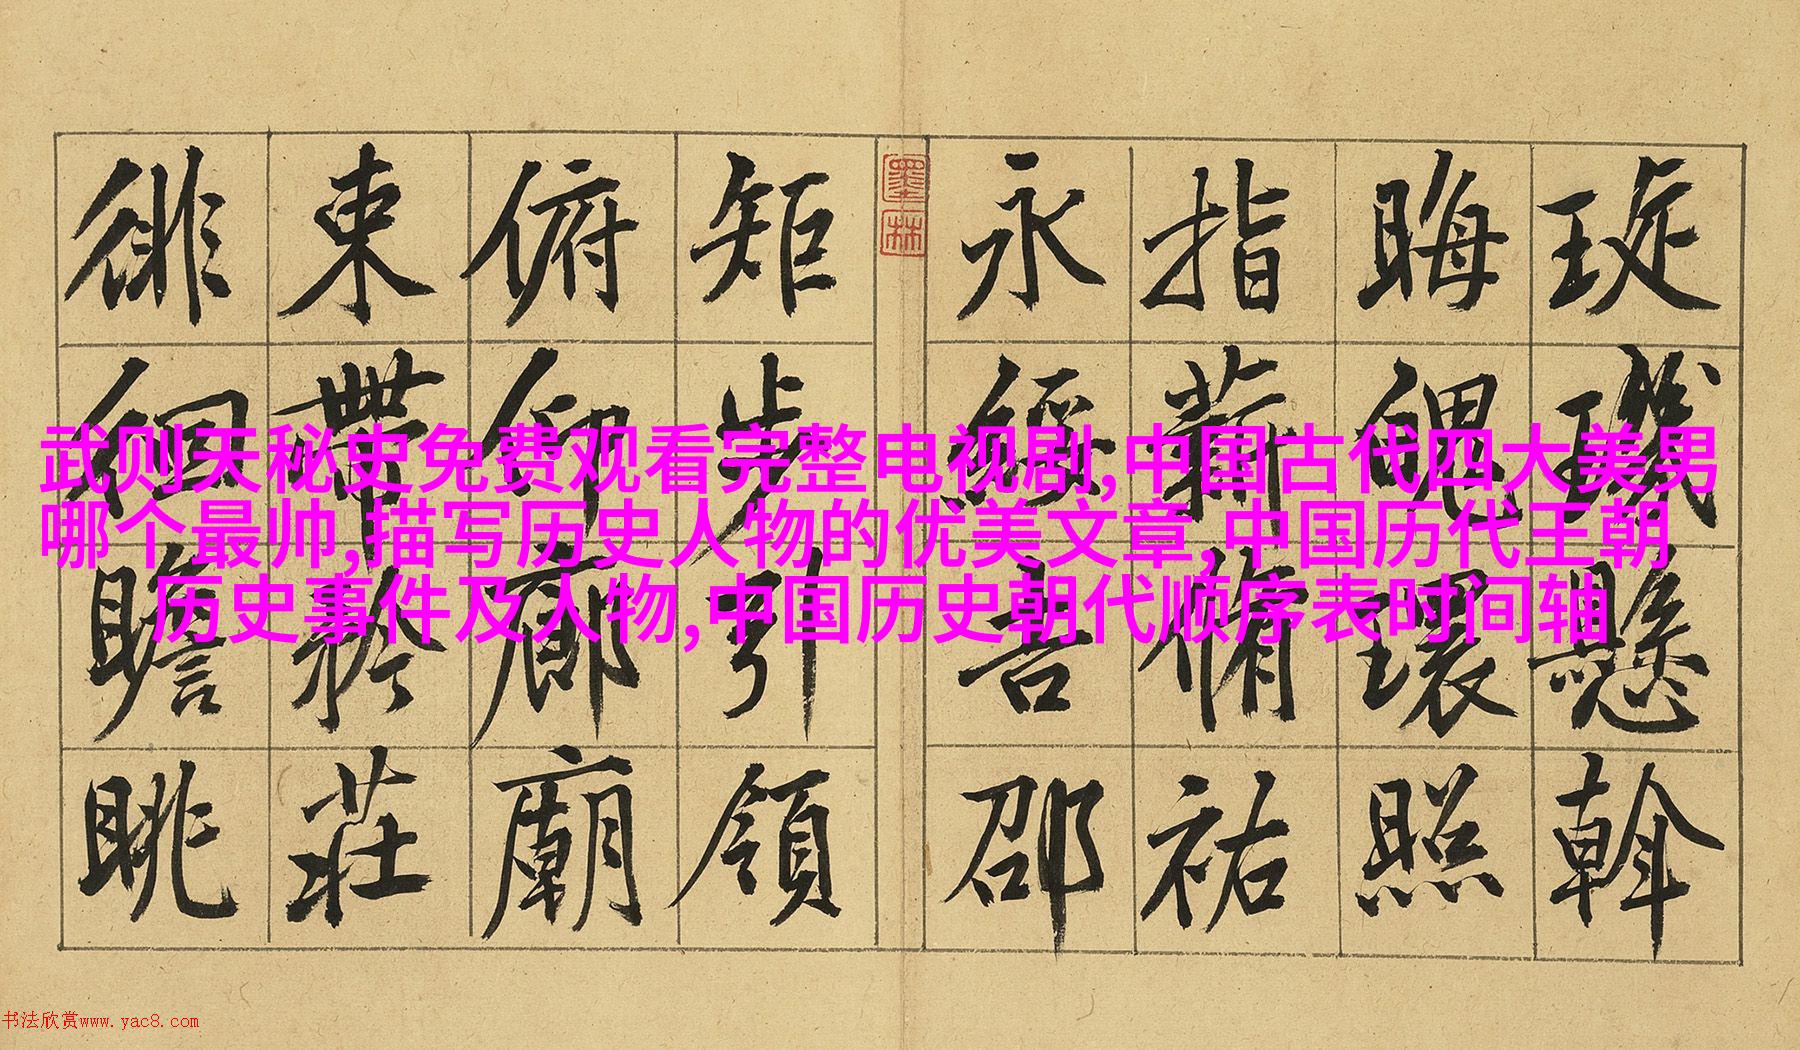 琁璣懸斡
晦魄環照
指薪脩祐
永綏吉邵
墨林
矩步引領
俯仰廊廟
束帶矜莊
徘徊瞻眺
武则天秘史免费观看完整电视剧,中国古代四大美男
哪个最帅,描写历史人物的优美文章,中国历代王朝
历史事件及人物,中国历史朝代顺序表时间轴
书法欣赏www.yac8.com